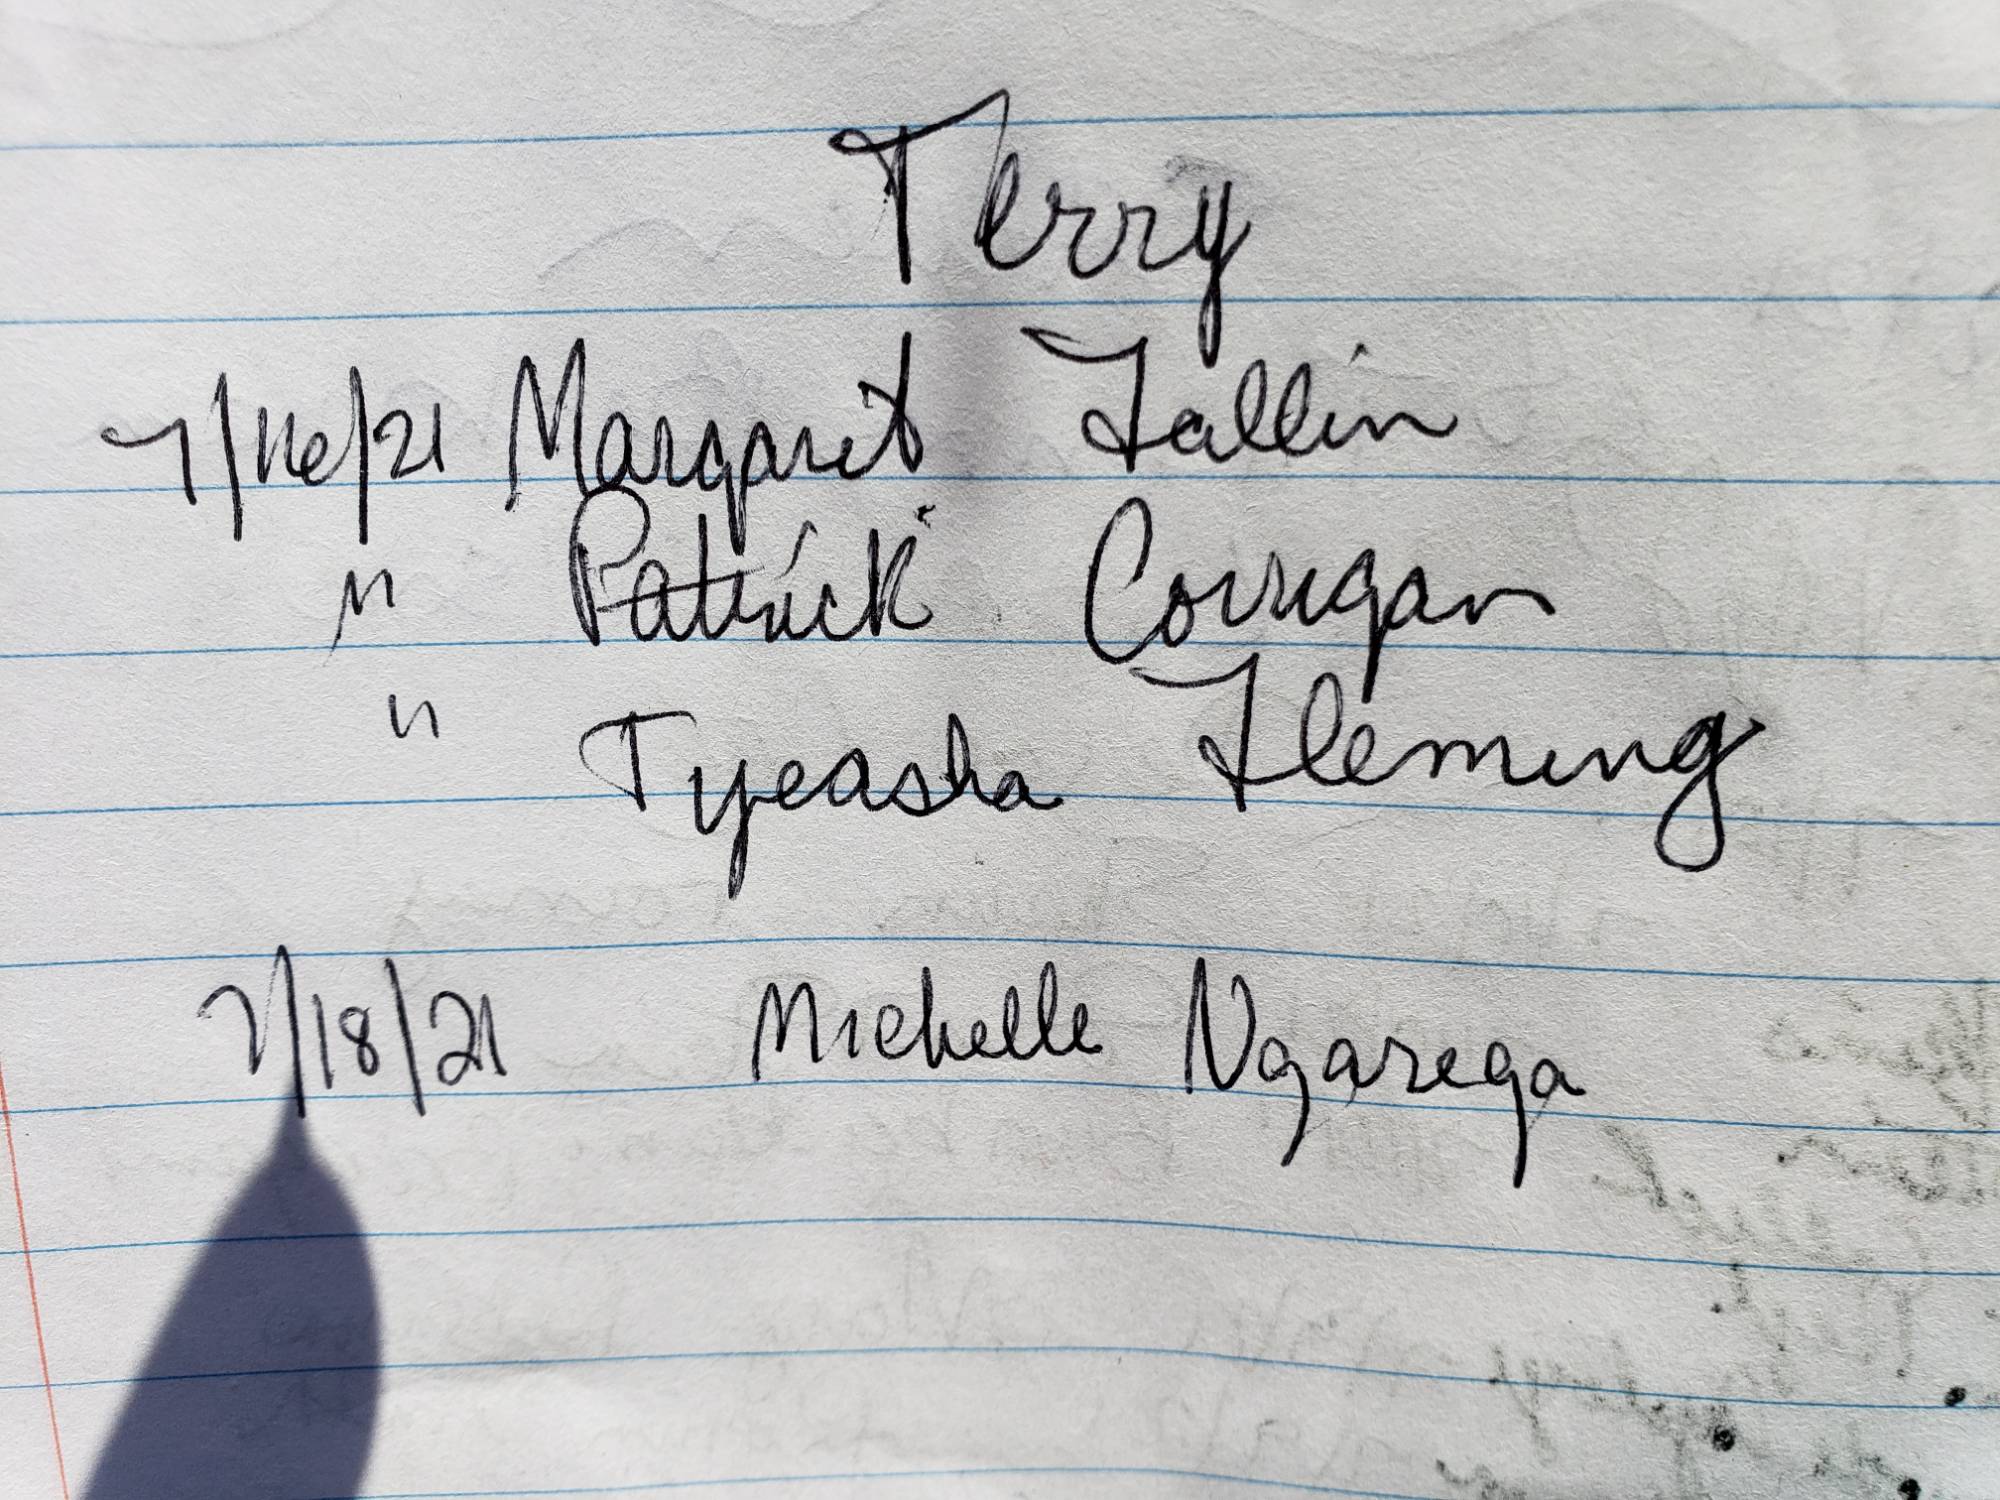 Terry
7/16/21 Margaret Fallin
" Patrick Corrigan
" Tyeasha Fleming
7/18/21 Michelle Ngarega